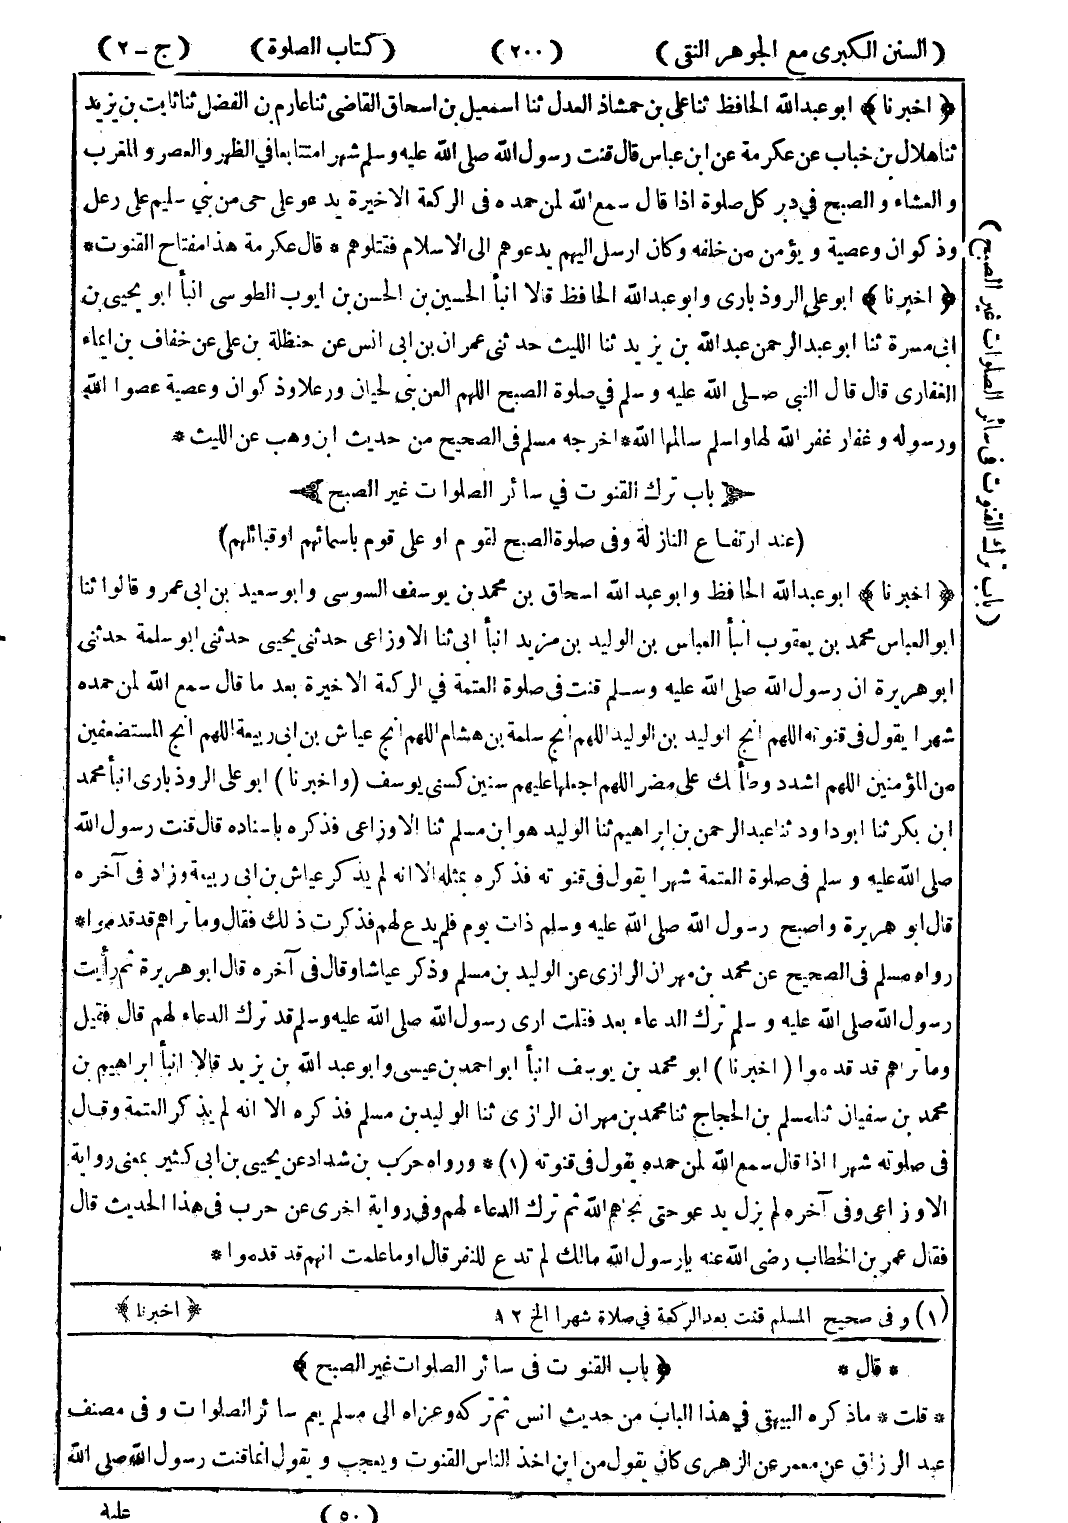 (السنن الكبرى مع الجوهر النقى) (٢٠٠) (كتاب الصلوة) (ج - ٢)
﴿ اخبرنا ﴾ ابو عبدالله الحافظ ثنا على بن حمشاذ العدل ثنا اسمعيل بن اسحاق القاضى ثنا عارم بن الفضل ثنا ثابت بن يزيد
ثنا هلال بن خباب عن عكرمة عن ابن عباس قال قنت رسول الله صلى الله عليه وسلم شهرا متتابعا في الظهر والعصر و المغرب
و العشاء و الصبح في دبر كل صلوة اذا قال سمع الله لمن حمده فى الركعة الاخيرة يدعو على حى من بني سليم على رعل
وذكوان وعصية و يؤمن من خلفه وكان ارسل اليهم يدعوهم الى الاسلام فقتلوهم * قال عكرمة هذا مفتاح القنوت *
﴿ اخبرنا ﴾ ابو على الروذبارى وابو عبدالله الحافظ قالا انبأ الحسين بن الحسن بن ايوب الطوسى انبأ ابو يحيى بن
ابى مسرة ثنا ابو عبدالرحمن عبدالله بن يزيد ثنا الليث حدثنى عمران بن ابى انس عن حنظلة بن على عن خفاف بن ايماء
الغفارى قال قال النبى صلى الله عليه وسلم في صلوة الصبح اللهم العن بنى لحيان ورعلا وذكوان وعصية عصوا الله
ورسوله و غفار غفر الله لها واسلم سالمها الله * اخرجه مسلم فى الصحيح من حديث ابن وهب عن الليث *
﴿ باب ترك القنوت في سائر الصلوات غير الصبح ﴾
(عند ارتفاع النازلة وفى صلوة الصبح لقوم او على قوم باسمائهم او قبائلهم)
﴿ اخبرنا ﴾ ابو عبدالله الحافظ وابو عبد الله اسحاق بن محمد بن يوسف السوسى وابو سعيد بن ابى عمرو قالوا ثنا
ابو العباس محمد بن يعقوب انبأ العباس بن الوليد بن مزيد انبأ ابى ثنا الاوزاعى حدثنى يحيى حدثنى ابو سلمة حدثنى
ابو هريرة ان رسول الله صلى الله عليه وسلم قنت فى صلوة العتمة في الركعة الاخيرة بعد ما قال سمع الله لمن حمده
شهرا يقول فى قنوته اللهم انج الوليد بن الوليد اللهم انج سلمة بن هشام اللهم انج عياش بن ابى ربيعة اللهم انج المستضعفين
من المؤمنين اللهم اشدد وطأتك على مضر اللهم اجعلها عليهم سنين كسنى يوسف (واخبرنا) ابو على الروذبارى انبأ محمد
ابن بكر ثنا ابو داود ثنا عبد الرحمن بن ابراهيم ثنا الوليد هو ابن مسلم ثنا الاوزاعى فذكره باسناده قال قنت رسول الله
صلى الله عليه و سلم فى صلوة العتمة شهرا يقول فى قنوته فذكره بمثله الا انه لم يذكر عياش بن ابى ربيعة وزاد فى آخره
قال ابو هريرة واصبح رسول الله صلى الله عليه وسلم ذات يوم فلم يدع لهم فذكرت ذلك فقال وما تراهم قد قدموا *
رواه مسلم فى الصحيح عن محمد بن مهران الرازى عن الوليد بن مسلم وذكر عياشا وقال فى آخره قال ابو هريرة ثم رأيت
رسول الله صلى الله عليه و سلم ترك الدعاء بعد فقلت ارى رسول الله صلى الله عليه وسلم قد ترك الدعاء لهم قال فقيل
وما تراهم قد قدموا (اخبرنا) ابو محمد بن يوسف انبأ ابو احمد بن عيسى وابو عبد الله بن يزيد قالا انبأ ابراهيم بن
محمد بن سفيان ثنا مسلم بن الحجاج ثنا محمد بن مهران الرازى ثنا الوليد بن مسلم فذكره الا انه لم يذكر العتمة وقال
فى صلوته شهرا اذا قال سمع الله لمن حمده يقول فى قنوته (١) * ورواه حرب بن شداد عن يحيى بن ابى كثير بمعنى رواية
الاوزاعى وفى آخره لم يزل يدعو حتى نجاهم الله ثم ترك الدعاء لهم وفى رواية اخرى عن حرب فى هذا الحديث قال
فقال عمر بن الخطاب رضى الله عنه يا رسول الله مالك لم تدع للنفر قال او ما علمت انهم قد قدموا *
(١) و فى صحيح المسلم قنت بعد الركعة في صلاة شهرا الخ ١٢ ﴿ اخبرنا ﴾
* قال * ﴿ باب القنوت فى سائر الصلوات غير الصبح ﴾
* قلت * ماذكره البيهقى في هذا الباب من حديث انس ثم تركه وعزاه الى مسلم يعم سائر الصلوات و فى مصنف
عبد الرزاق عن معمر عن الزهرى كان يقول من اين اخذ الناس القنوت ويعجب و يقول انما قنت رسول الله صلى الله
(٥٠) عليه
(باب ترك القنوت فى سائر الصلوات غير الصبح)